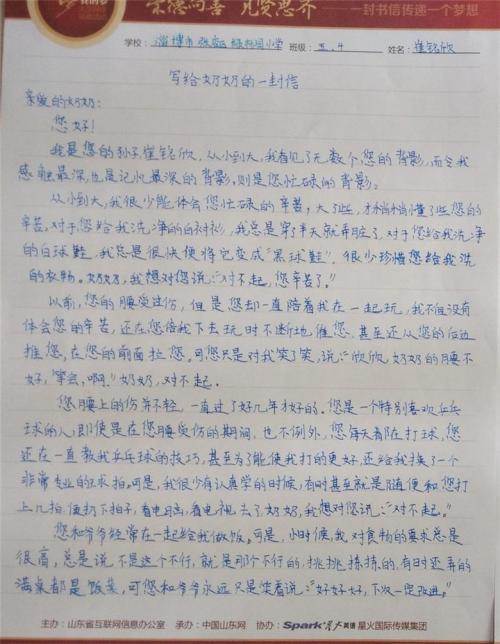 崇德尚善 见贤思齐——一封书信传递一个梦想
学校：淄博市张店 小学 班级：五.4 姓名：崔铭欣
写给奶奶的一封信
亲爱的奶奶：
您好！
我是您的孙子崔铭欣，从小到大，我看见了无数个您的背影，而令我
感触最深，也是记忆最深的背影，则是您忙碌的背影。
从小到大，我很少能体会您忙碌的辛苦，大了些，才稍稍懂了些您的
辛苦，对于您给我洗净的白衬衫，我总是穿了半天就弄脏了，对于您给我洗净
的白球鞋，我总是很快便将它变成“黑球鞋”，很少珍惜您给我洗
的衣物。奶奶，我想对您说：“对不起，您辛苦了。”
以前，您的腰受过伤，但是您却一直陪着我在一起玩，我不但没有
体会您的辛苦，还在您陪我下去玩时不断地催您，甚至还从您的后边
推您，在您的前面拉您。可您只是对我笑了笑，说：“欣欣，奶奶的腰不
好，等会，啊。”奶奶，对不起。
您腰上的伤并不轻，一直过了好几年才好的。您是一个特别喜欢乒乓
球的人，即使是在您腰受伤的期间，也不例外，您每天都在打球，您
还在一直教我乒乓球的技巧，甚至为了能使我打的更好，还给我换了一个
非常专业的球拍。可是，我很少有认真学的时候，有时甚至就是随便和您打
上几拍，便扔下拍子，看电脑，看电视去了，奶奶，我想对您说：“对不起。”
您和爷爷经常在一起给我做饭。可是，小时候，我对食物的要求总是
很高，总是说不是这个不行，就是那个不行的，挑挑拣拣的，有时还弄的
满桌都是饭菜，可您和爷爷永远只是笑着说：“好好好，下次一定改进。”
主办：山东省互联网信息办公室 承办：中国山东网 协办：Spark星火英语 星火国际传媒集团